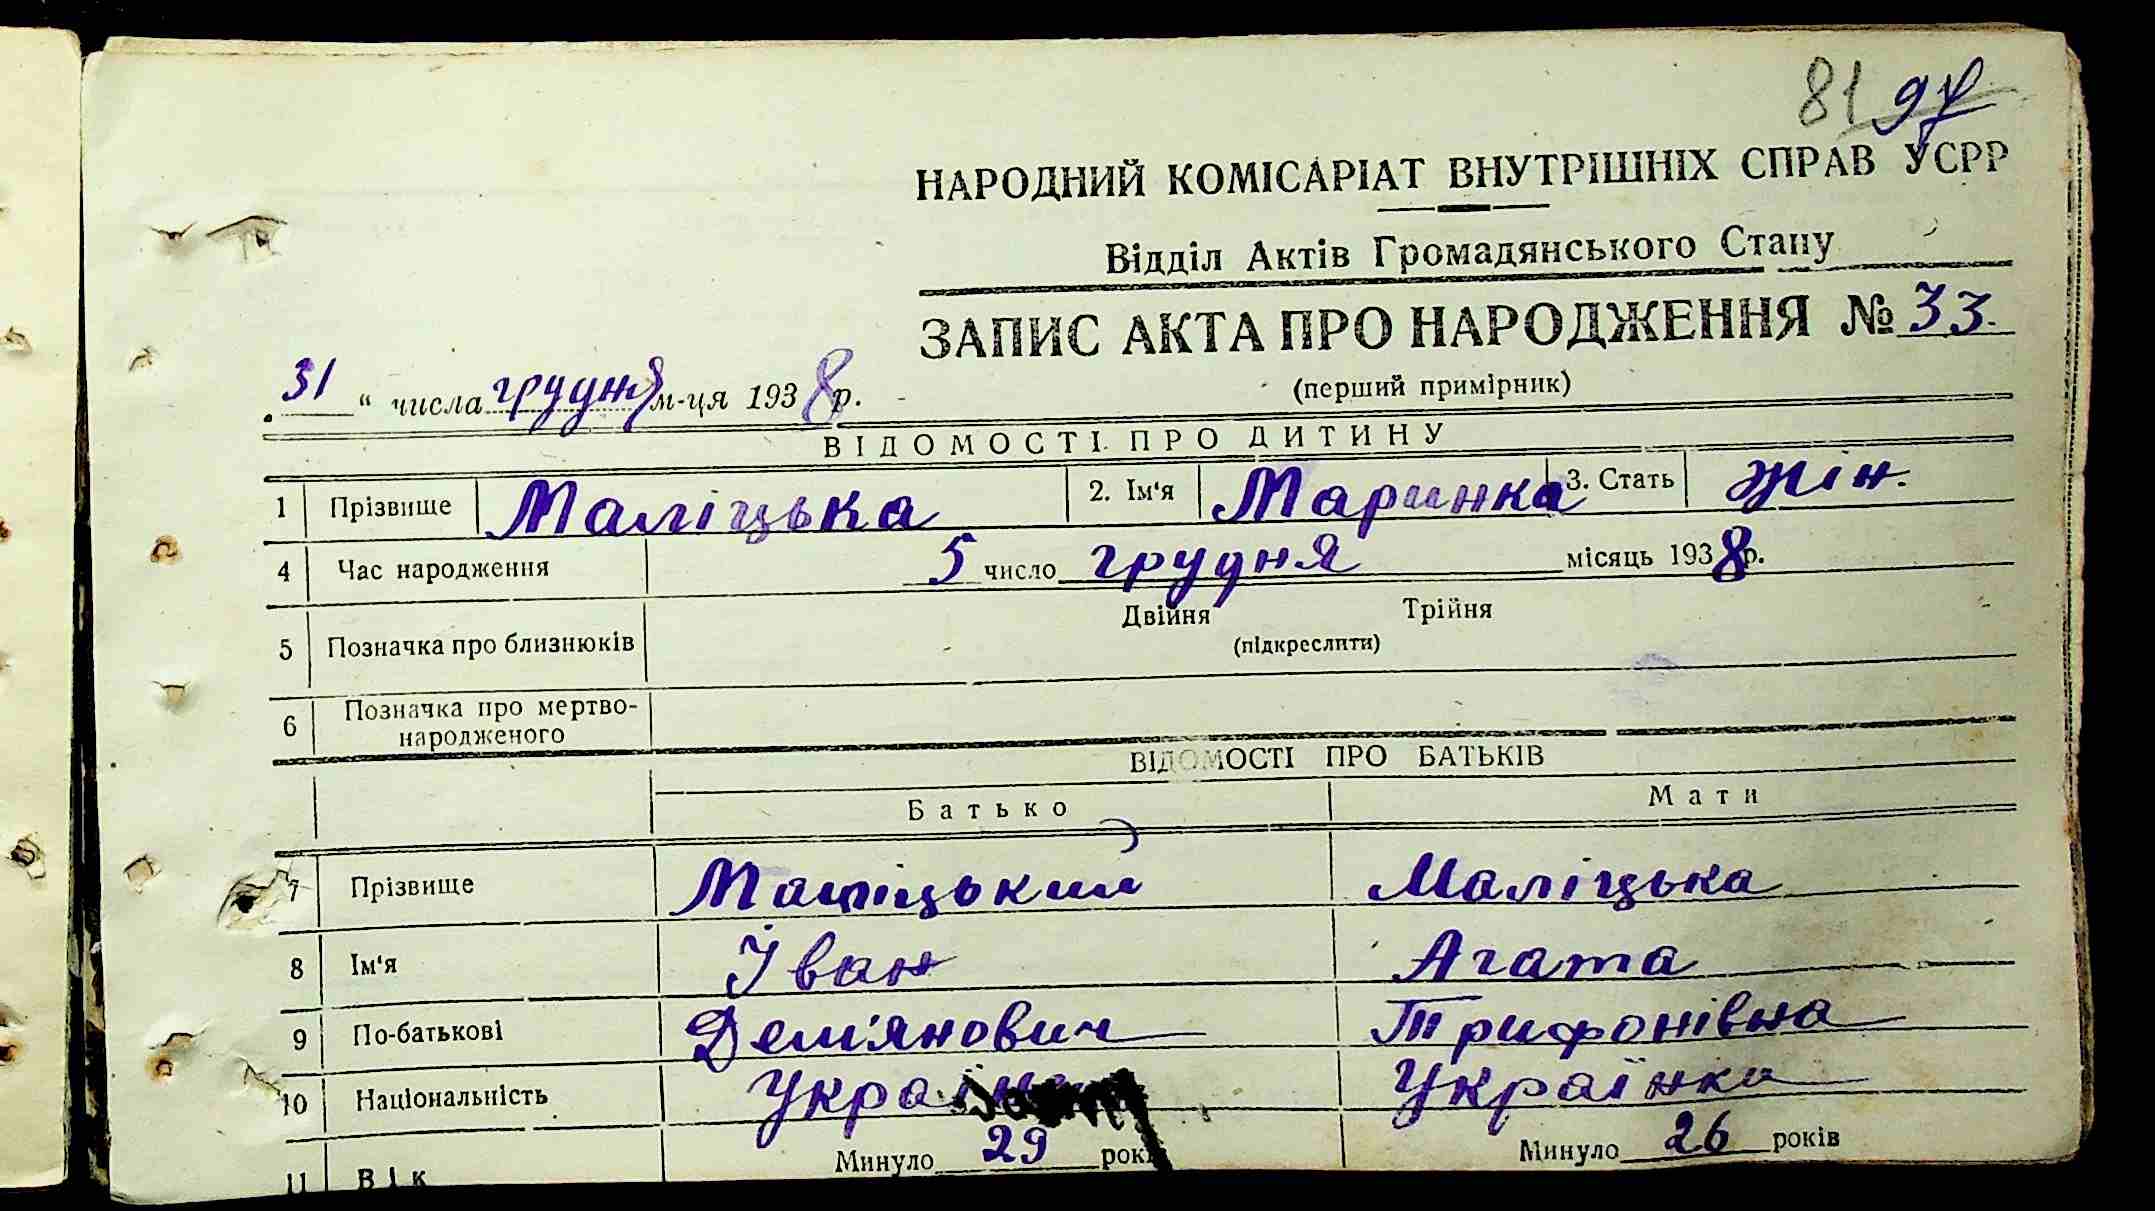 81 97
НАРОДНИЙ КОМІСАРІАТ ВНУТРІШНІХ СПРАВ УСРР
Відділ Актів Громадянського Стану
ЗАПИС АКТА ПРО НАРОДЖЕННЯ № 33.
(перший примірник)
„31“ числа грудня м-ця 1938 р.
ВІДОМОСТІ ПРО ДИТИНУ
1 Прізвище Маліцька 2. Ім'я Маринка 3. Стать жін.
4 Час народження 5 число грудня місяць 1938 р.
5 Позначка про близнюків Двійня Трійня
(підкреслити)
6 Позначка про мертво-
народженого
ВІДОМОСТІ ПРО БАТЬКІВ
Батько Мати
7 Прізвище Маліцький Маліцька
8 Ім'я Іван Агата
9 По-батькові Дем'янович Трифонівна
10 Національність Українка
11 Вік Минуло 29 років Минуло 26 років